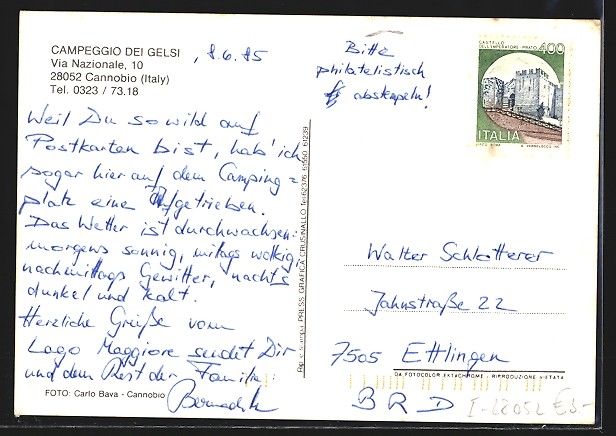 CAMPEGGIO DEI GELSI
Via Nazionale, 10
28052 Cannobio (Italy)
Tel. 0323 / 73.18
, 8.6.85
Weil Du so wild auf
Postkarten bist, hab' ich
sogar hier auf dem Camping=
platz eine aufgetrieben.
Das Wetter ist durchwachsen:
morgens sonnig, mittags wolkig,
nachmittags Gewitter, nachts
dunkel und kalt.
Herzliche Grüße vom
Lago Maggiore sendet Dir
und dem Rest der Familie
FOTO: Carlo Bava - Cannobio
PRESS GRAFICA CRUSINALLO Tel. 62376 61550 61239
Bitte
philatelistisch
abstempeln!
CASTELLO
DELL'IMPERATORE - PRATO
400
ITALIA
Walter Schlotterer
Jahnstraße 22
7505 Ettlingen
DA FOTOCOLOR EXTACHROME - RIPRODUZIONE VIETATA
BRD
I-28052